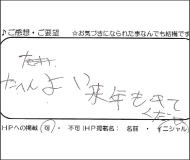 ♪ご感想・ご要望 ☆お気づきになられた事なんでも結構です
たいへんよい
来年もきて
ください
HPへの掲載(可・不可)HP掲載名: 名前・イニシャル